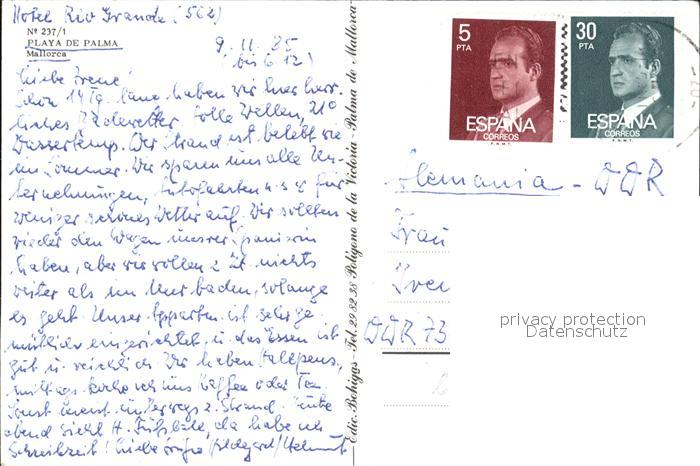 Hotel Rio Grande (562)
Nº 237/1
PLAYA DE PALMA
Mallorca
9.11.85
(bis 6.12)
Liebe Irene!
Schon 14 Tg. lang haben wir hier herr-
liches Badewetter, tolle Wellen, 21°
Wassertemp. Der Strand ist belebt wie
im Sommer. Wir sparen uns alle Un-
ternehmungen, Autofahrten u.s.w für
weniger schönes Wetter auf. Wir sollten
wieder den Wagen unsrer Spanierin
haben, aber wir wollen z. Zt. nichts
weiter als im Meer baden, solange
es geht. Unser Apparten. ist sehr ge-
mütlich eingerichtet, u. das Essen ist
gut u. reichlich. Wir haben Halbpens.,
mittags koche ich uns Kaffee oder Tee
sonst unterwegs z. Strand. Heute
abend sieht H. Fußball, da habe ich
Schreibzeit! Liebe Grüße Hildegard/Helmut
Edic. Bohigas - Tel. 29 82 38 Polígono de la Victoria - Palma de Mallorca
5
PTA
ESPAÑA
CORREOS
F.N.M.T.
30
PTA
ESPAÑA
CORREOS
F.N.M.T.
Alemania - DDR
Frau
DDR 73
privacy protection
Datenschutz